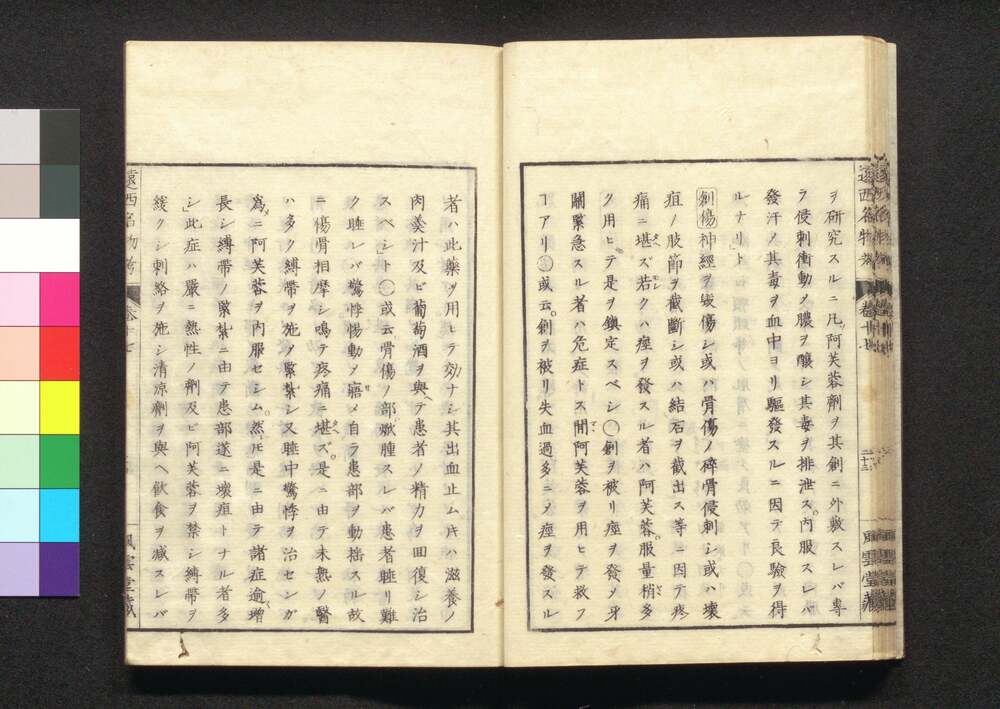 ヲ研究スルニ凡阿芙蓉劑ヲ其創ニ外敷スレバ專
ラ侵刺衝動メ膿ヲ釀シ其毒ヲ排泄ス。内服スレバ
發汗ノ其毒ヲ血中ヨリ驅發スルニ因テ良驗ヲ得
ルナリ」ト
創傷神經ヲ毀傷シ或ハ骨傷ノ碎骨侵刺シ或ハ壞
疽ノ肢節ヲ截斷シ或ハ結石ヲ截出ス等ニ因テ疼
痛ニ堪ズ若クハ痙ヲ發スル者ハ阿芙蓉。服量稍多
ク用ヒテ是ヲ鎮定スベシ◯創ヲ被リ痙ヲ發メ牙
關緊急スル者ハ危症トス間阿芙蓉ヲ用ヒテ救フ
コアリ◯或云。創ヲ被リ失血過多ニメ痙ヲ發スル
者ハ此藥ヲ用ヒテ効ナシ其出血止ム片ハ滋養ノ
肉羹汁及ビ葡萄酒ヲ與ヘテ患者ノ精力ヲ回復シ治
スベシ」ト◯或云骨傷ノ部焮腫スレバ患者睡リ難
ク睡レバ驚悸惕動メ寤メ自ラ患部ヲ動揺スル故
ニ傷骨相摩シ鳴テ疼痛ニ堪ズ。是ニ由テ未熟ノ醫
ハ多ク縛帶ヲ施メ緊紮シ又睡中驚悸ヲ治センガ
爲ニ阿芙蓉ヲ内服セシム。然ㇳモ是ニ由テ諸症逾增
長シ縛帶ノ緊紮ニ由テ患部遂ニ壞疽トナル者多
シ此症ハ嚴ニ熱性ノ劑及ビ阿芙蓉ヲ禁シ縛帶ヲ
緩クシ刺絡ヲ施シ清凉劑ヲ與ヘ飲食ヲ減スレバ